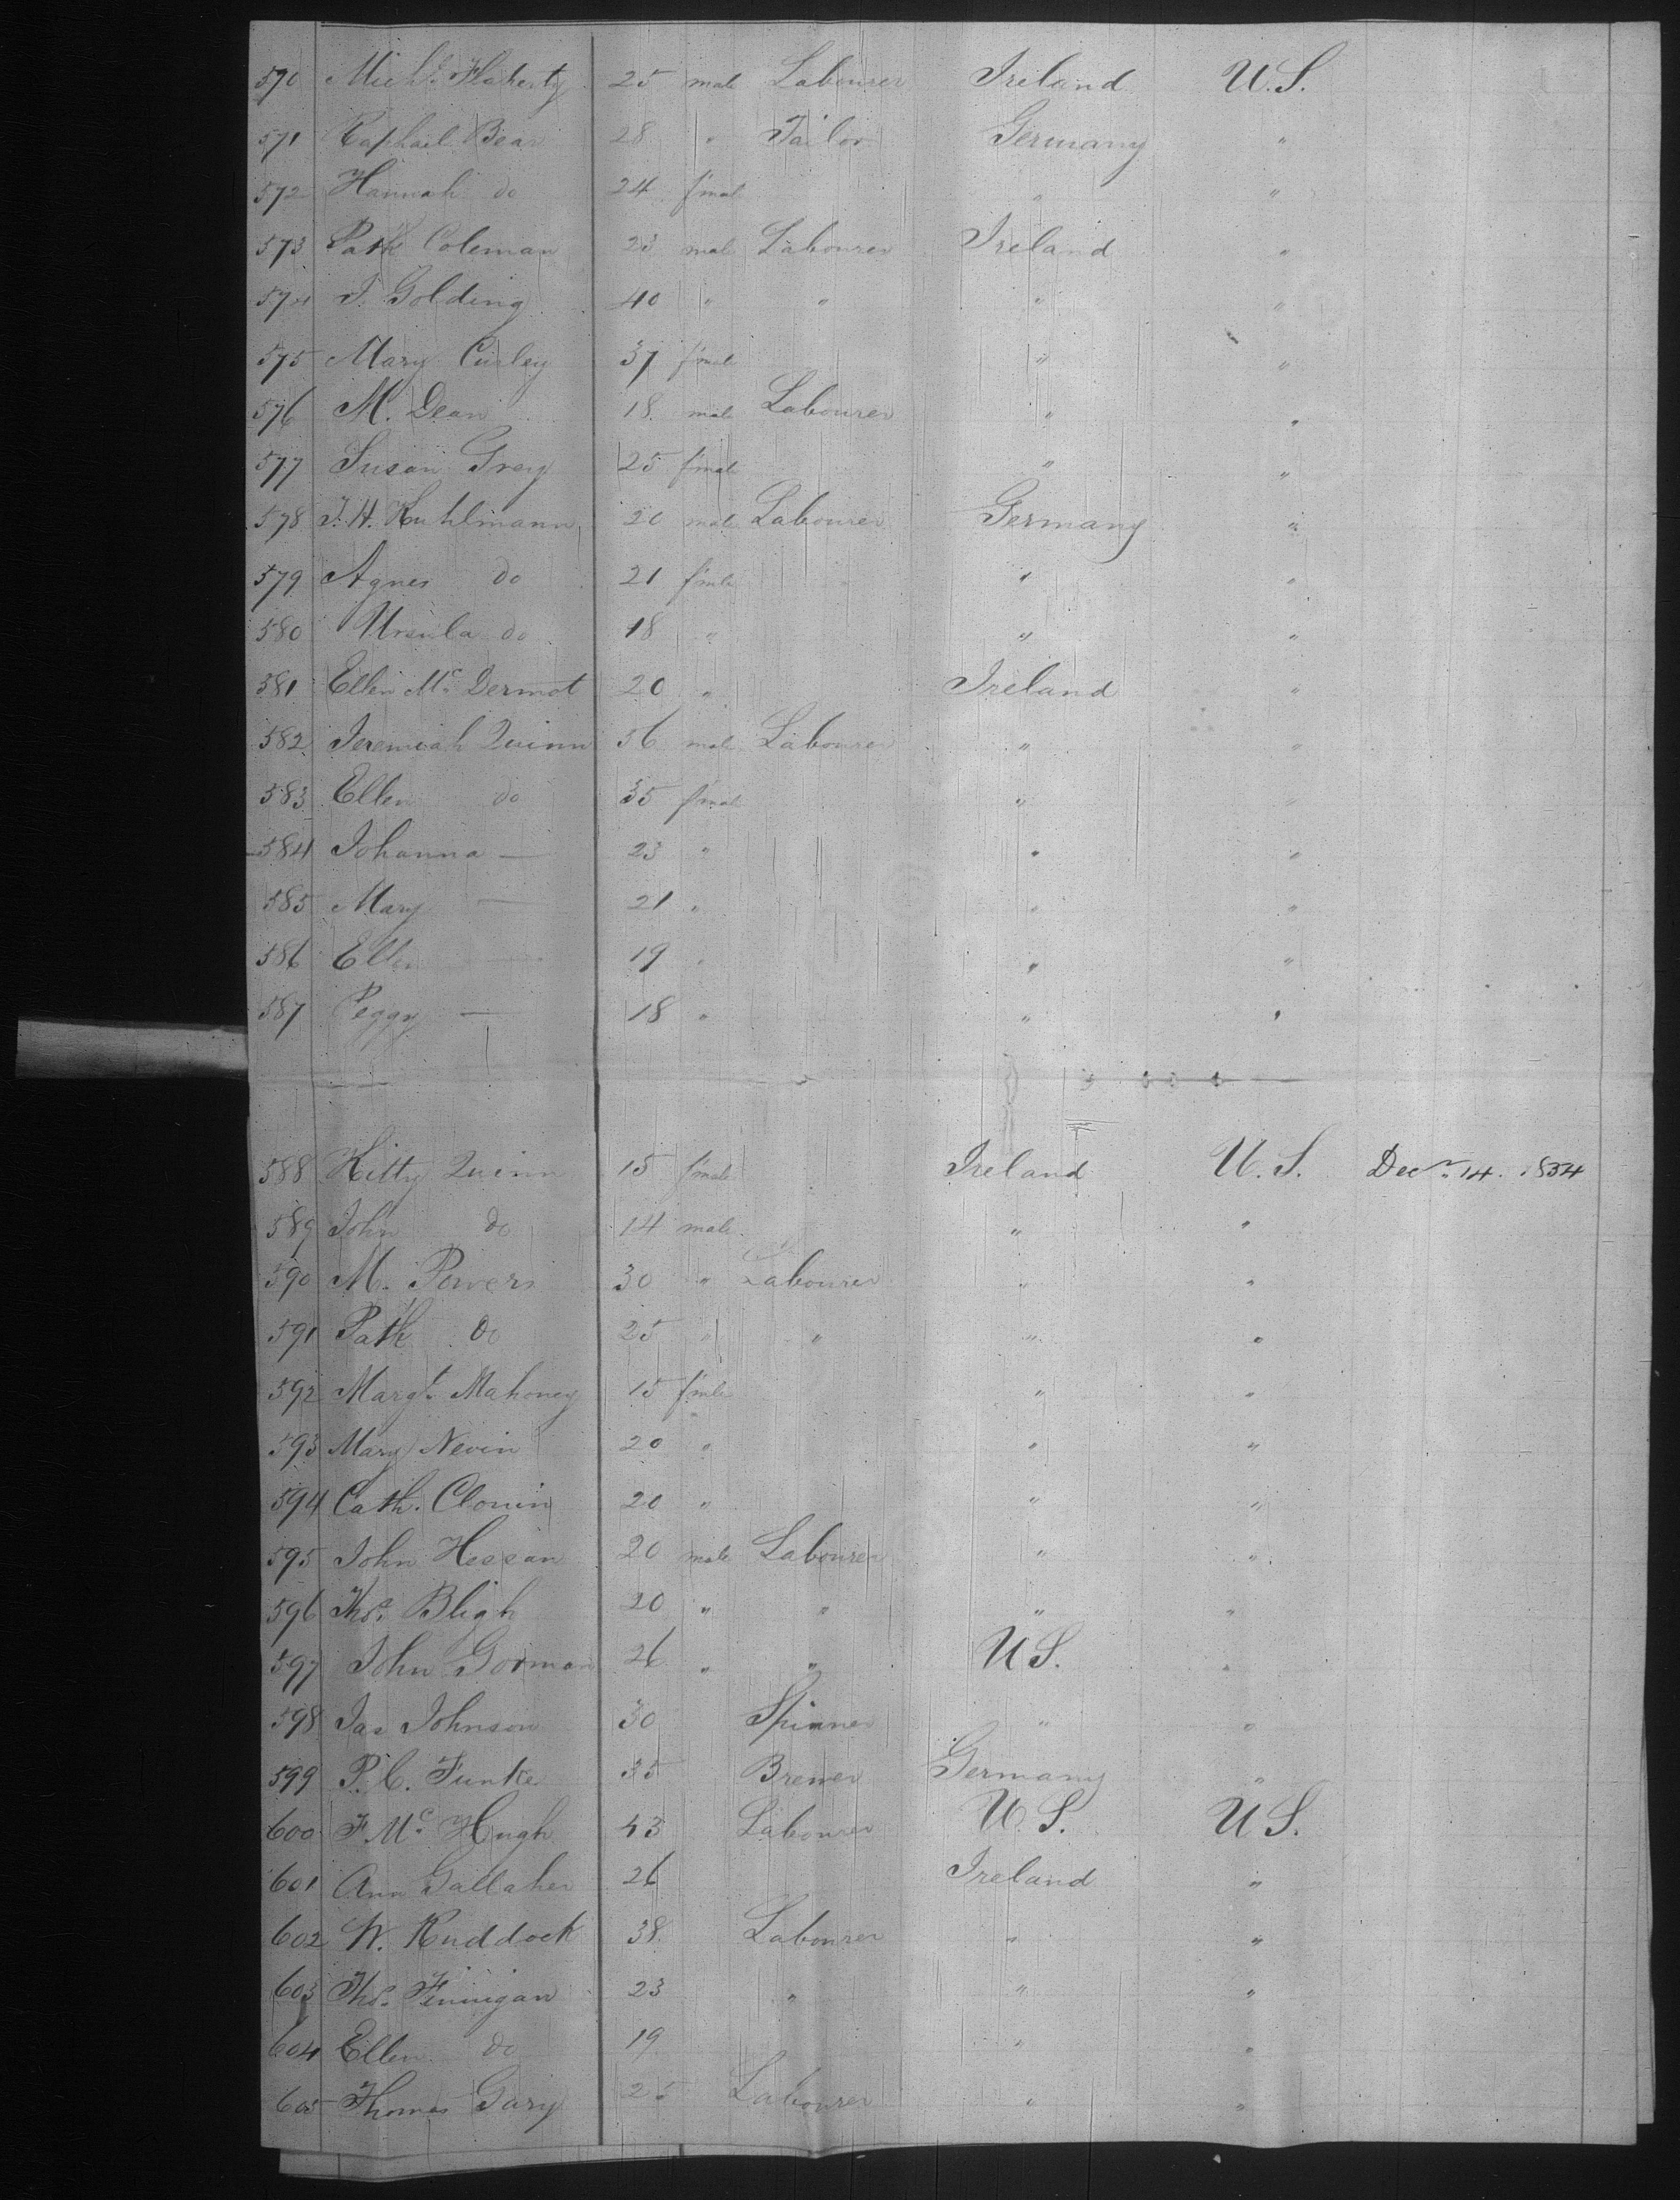 570 Michl. Flaherty 25 male Labourer Ireland U.S.
571 Raphael Bear 28 " Tailor Germany "
572 Hannah do 24 f'mal " "
573 Patk Coleman 23 male Labourer Ireland "
574 J. Golding 40 " " " "
575 Mary Curley 37 f'male " "
576 M. Dean 18 male Labourer " "
577 Susan Grey 25 f'male " "
578 J. H. Kuhlmann 20 male Labourer Germany "
579 Agnes do 21 f'mle " "
580 Ursula do 18 " " "
581 Ellen Mc. Dermot 20 " Ireland "
582 Jeremiah Quinn 56 male Labourer " "
583 Ellen do 35 f'male " "
584 Johanna — 23 " " "
585 Mary — 21 " " "
586 Ellen — 19 " " "
587 Peggy — 18 " " "
588 Kitty Quinn 15 f'male Ireland U.S. Decr. 14. 1834
589 John do 14 male " "
590 M. Powers 30 " Labourer " "
591 Patk do 25 " " " "
592 Margt. Mahoney 15 f'mle " "
593 Mary Nevin 20 " " "
594 Cath. Clonin 20 " " "
595 John Hessan 20 male Labourer " "
596 Thos. Bligh 20 " " " "
597 John Gorman 26 " " U S. "
598 Jas Johnson 30 Spinner " "
599 P. C. Funke 35 Brewer Germany "
600 F Mc. Hugh 43 Labourer U.S. U S.
601 Ann Gallaher 26 Ireland "
602 W. Ruddock 38 Labourer " "
603 Thos. Finnigan 23 " " "
604 Ellen do 19 " "
605 Thomas Gary 25 Labourer " "